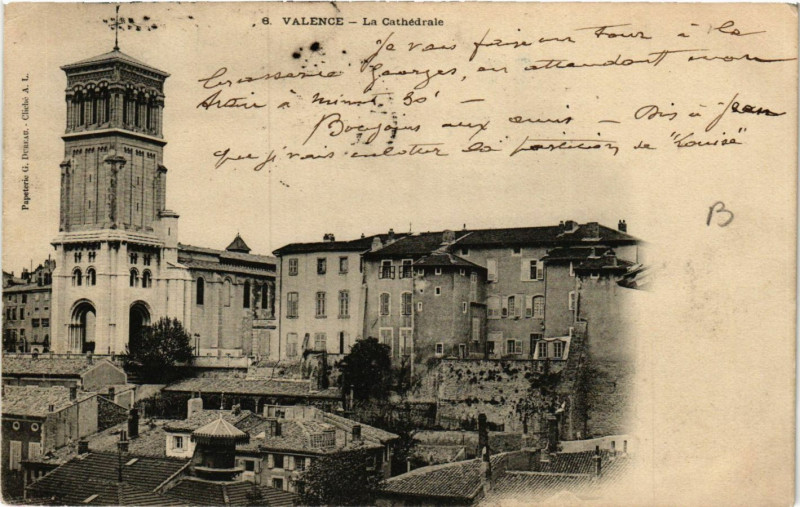 6. VALENCE — La Cathédrale
Je vais faire un tour à la
brasserie Georges, en attendant mon
train à minuit 30' —
Bonjours aux amis — Dis à Jean
que je vais la partition de "Louise"
B
Papeterie G. DUREAU. - Cliché A. L.